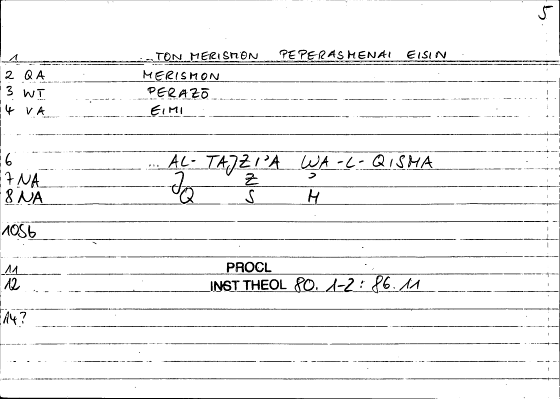 5
1 ...TON MERISMON PEPERASMENAI EISIN
2 QA MERISMON
3 WT PERAZŌ
4 VA EIMI
6 ... AL-TAJZI'A WA-L-QISMA
7 NA J Z '
8 NA Q S M
10 Sb
11 PROCL
12 INST THEOL 80. 1-2 : 86. 11
14 ?